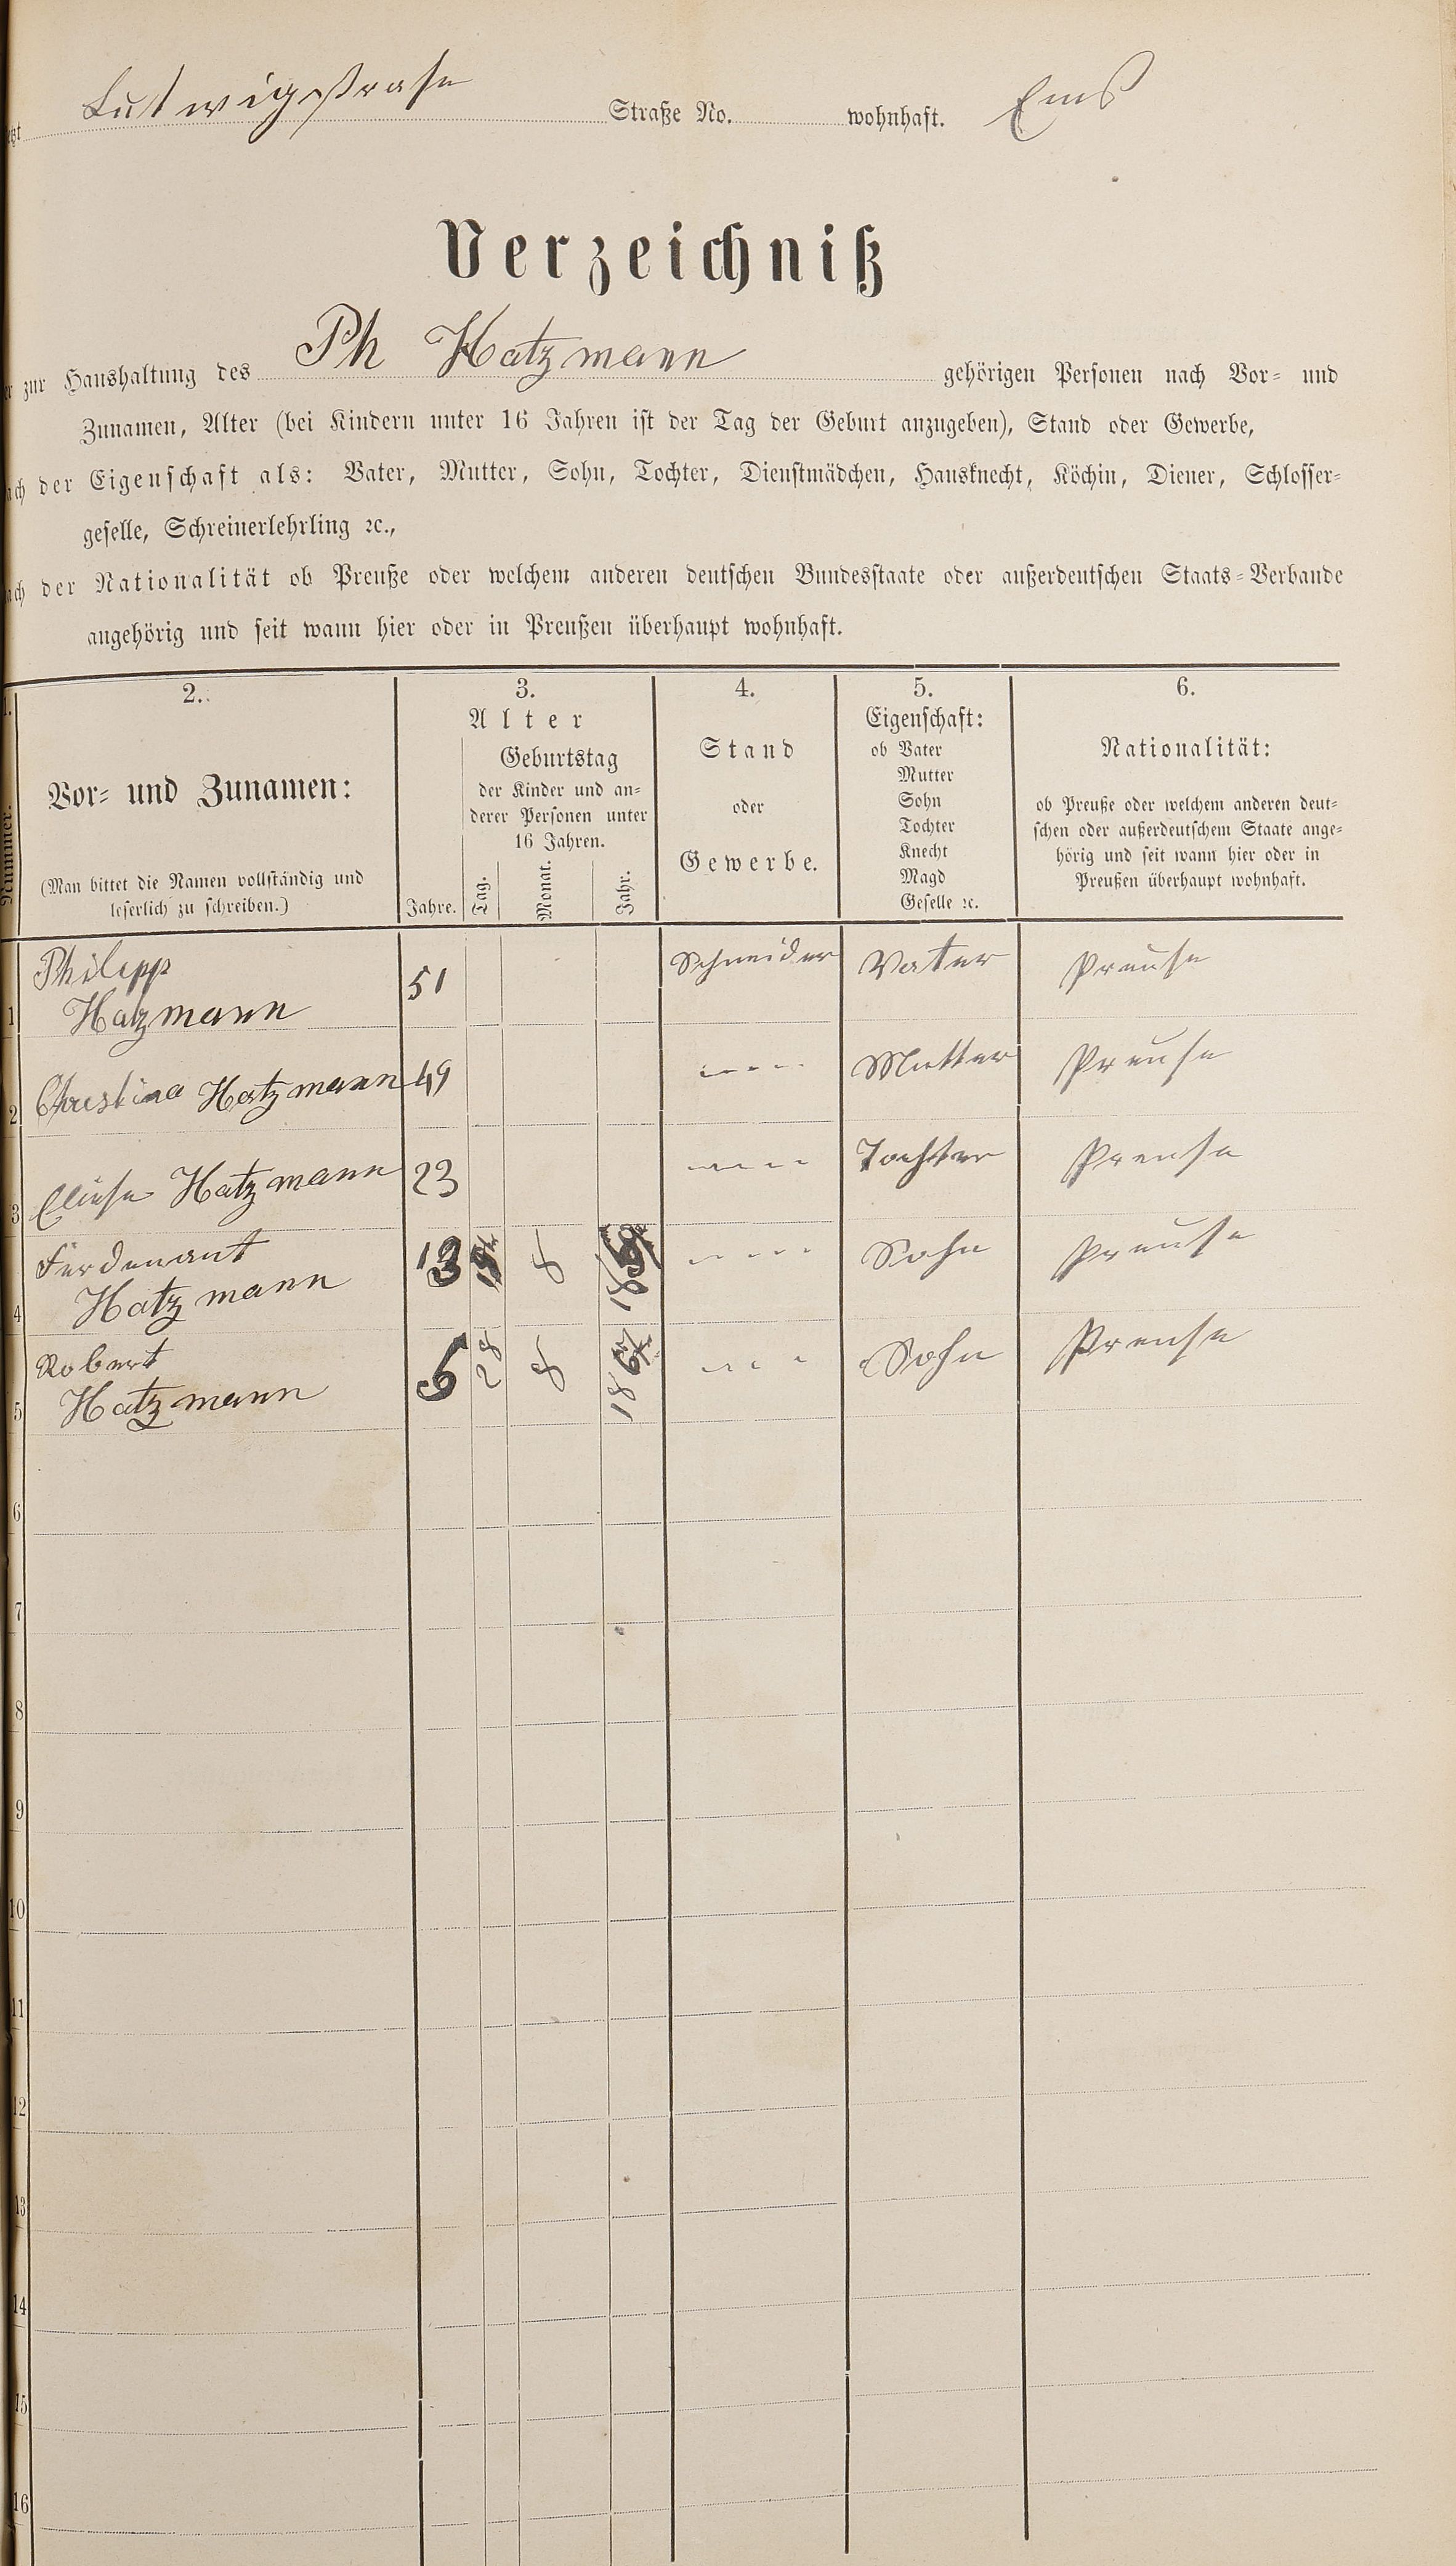 Lutwigstrase Straße No. wohnhaft. Ems
Verzeichniß
zur Haushaltung des Ph Hatzmann gehörigen Personen nach Vor- und
Zunamen, Alter (bei Kindern unter 16 Jahren ist der Tag der Geburt anzugeben), Stand oder Gewerbe,
der Eigenschaft als: Vater, Mutter, Sohn, Tochter, Dienstmädchen, Hausknecht, Köchin, Diener, Schlosser-
geselle, Schreinerlehrling ꝛc.,
der Nationalität ob Preuße oder welchem anderen deutschen Bundesstaate oder außerdeutschen Staats-Verbande
angehörig und seit wann hier oder in Preußen überhaupt wohnhaft.
Nummer.
2.
Vor- und Zunamen:
(Man bittet die Namen vollständig und
leserlich zu schreiben.)
3.
Alter
Geburtstag
der Kinder und an-
derer Personen unter
16 Jahren.
Jahre. Tag. Monat. Jahr.
4.
Stand
oder
Gewerbe.
5.
Eigenschaft:
ob Vater
Mutter
Sohn
Tochter
Knecht
Magd
Geselle ꝛc.
6.
Nationalität:
ob Preuße oder welchem anderen deut-
schen oder außerdeutschem Staate ange-
hörig und seit wann hier oder in
Preußen überhaupt wohnhaft.
Philipp
1 Hatzmann 51 Schneider Vater Preuse
2 Christina Hatzmann 49 ---- Mutter Preuse
3 Eliese Hatzmann 23 ---- Tochter Preuse
Ferdenant
4 Hatzmann 13 8 ---- Sohn Preuse
Robert
5 Hatzmann 5 28 8 --- Sohn Preuse
6
7
8
9
10
11
12
13
14
15
16